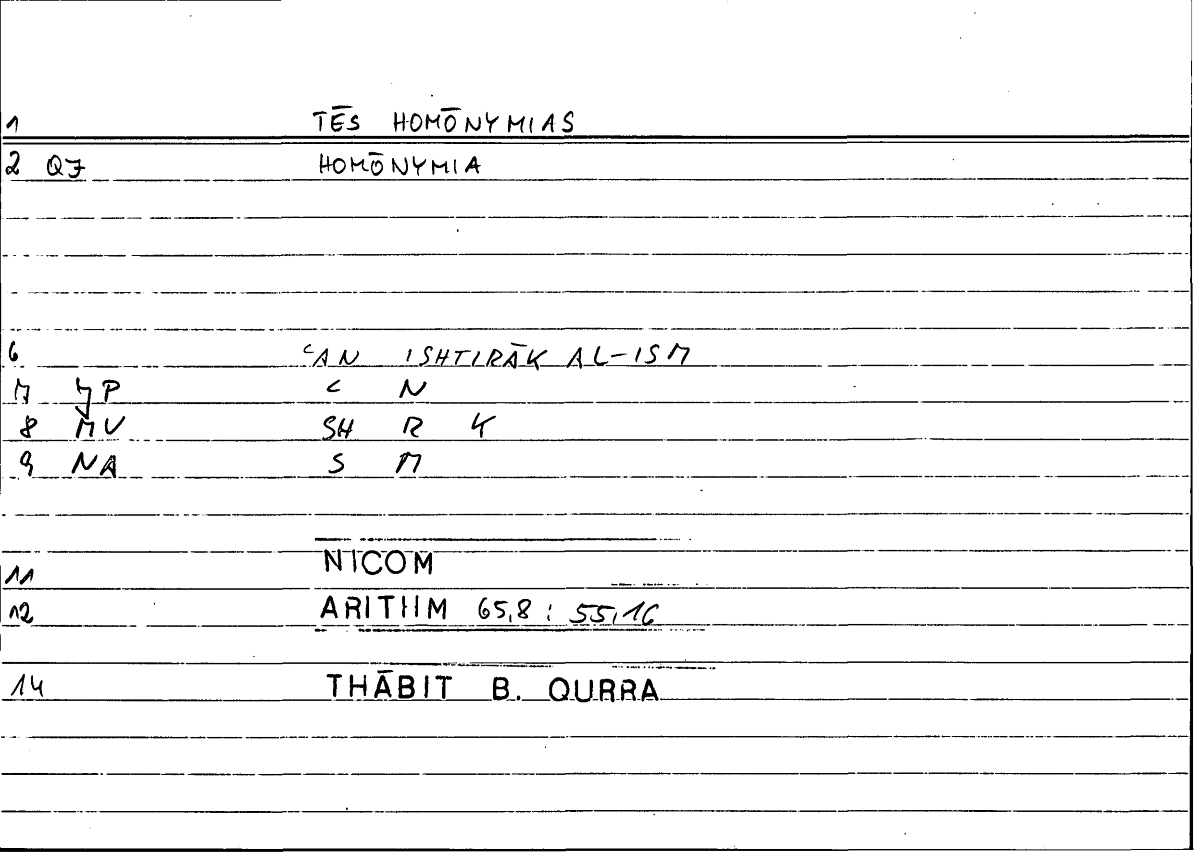 1 TĒS HOMŌNYMIAS
2 QJ HOMŌNYMIA
6 ʿAN ISHTIRĀK AL-ISM
7 JP ʿ N
8 MV SH R K
9 NA S M
11 NICOM
12 ARITHM 65,8 : 55,16
14 THĀBIT B. QURRA